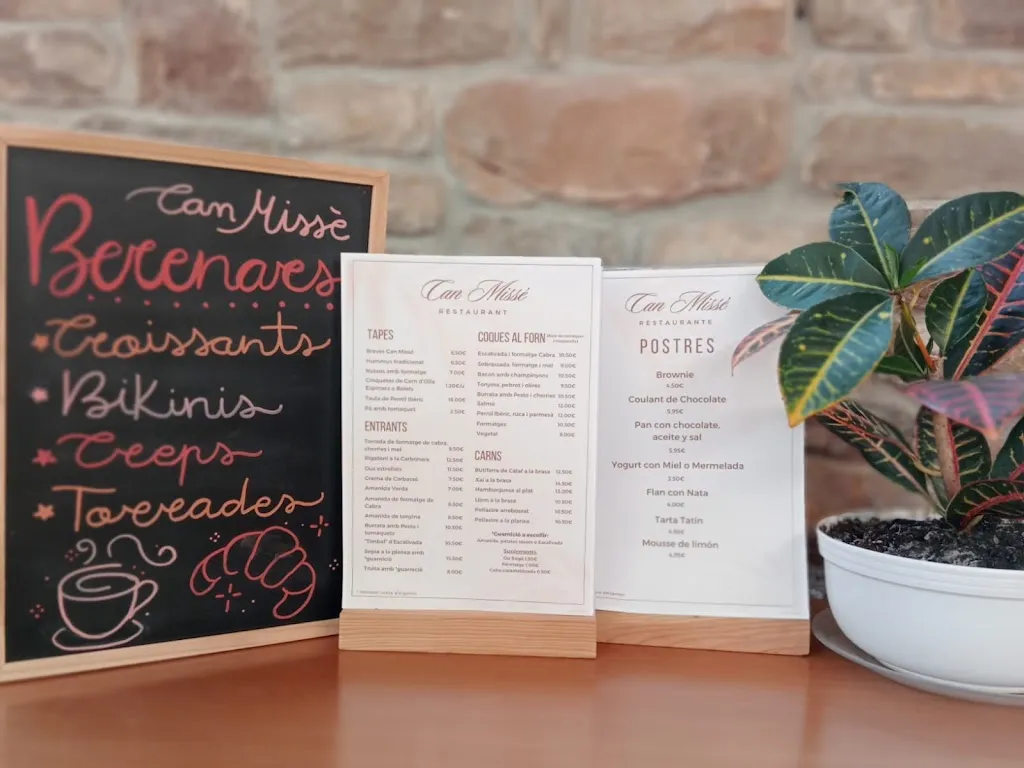 Can Missè
Berenars
Croissants
Bikinis
Creps
Torrades
Can Missé
RESTAURANT
TAPES
Braves Can Missé 6.50€
Hummus tradicional 6.50€
Natxos amb formatge 7.00€
Croquetes de Carn d'Olla
Espinacs o Bolets
Taula de Pernil Ibèric 18.00€
Pà amb tomaquet 2.50€
ENTRANTS
Torrada de formatge de cabra,
cherries i mel 9.50€
Rigatoni a la Carbonara
Ous estrellats 11.50€
Crema de Carbassó 7.50€
Amanida Verda 7.00€
Amanida de formatge de
Cabra
Amanida de tonyina
Burrata amb Pesto i
tomàquets 10.50€
"Timbal" d'Escalivada 10.50€
Sepia a la planxa amb
*guarnició
Truita amb *guarnició 8.00€
COQUES AL FORN
Escalivada i formatge Cabra 10.50€
Sobrassada, formatge i mel 9.50€
Bacon amb champinyons 10.50€
Tonyina, pebrot i olives 9.50€
Burrata amb Pesto i cherries 10.50€
Salmó 12.00€
Pernil Ibèric, ruca i parmesà 12.00€
Formatges 10.50€
Vegetal 9.00€
CARNS
Butifarra de Cálaf a la brasa 12.50€
Xai a la brasa 14.50€
Hamburguesa al plat 12.20€
Llom a la brasa 10.50€
Pollastre arrebossat 10.50€
Pollastre a la planxa 10.50€
*Guarnició a escollir:
Amanida, patates rosses o Escalivada
Suplements
Ou fregit 1.50€
Formatge 1.00€
Ceba caramelitzada 0.50€
Can Missé
RESTAURANTE
POSTRES
Brownie
4.50€
Coulant de Chocolate
5.95€
Pan con chocolate,
aceite y sal
5.95€
Yogurt con Miel o Mermelada
2.50€
Flan con Nata
4.00€
Tarta Tatín
Mousse de limón
4.95€